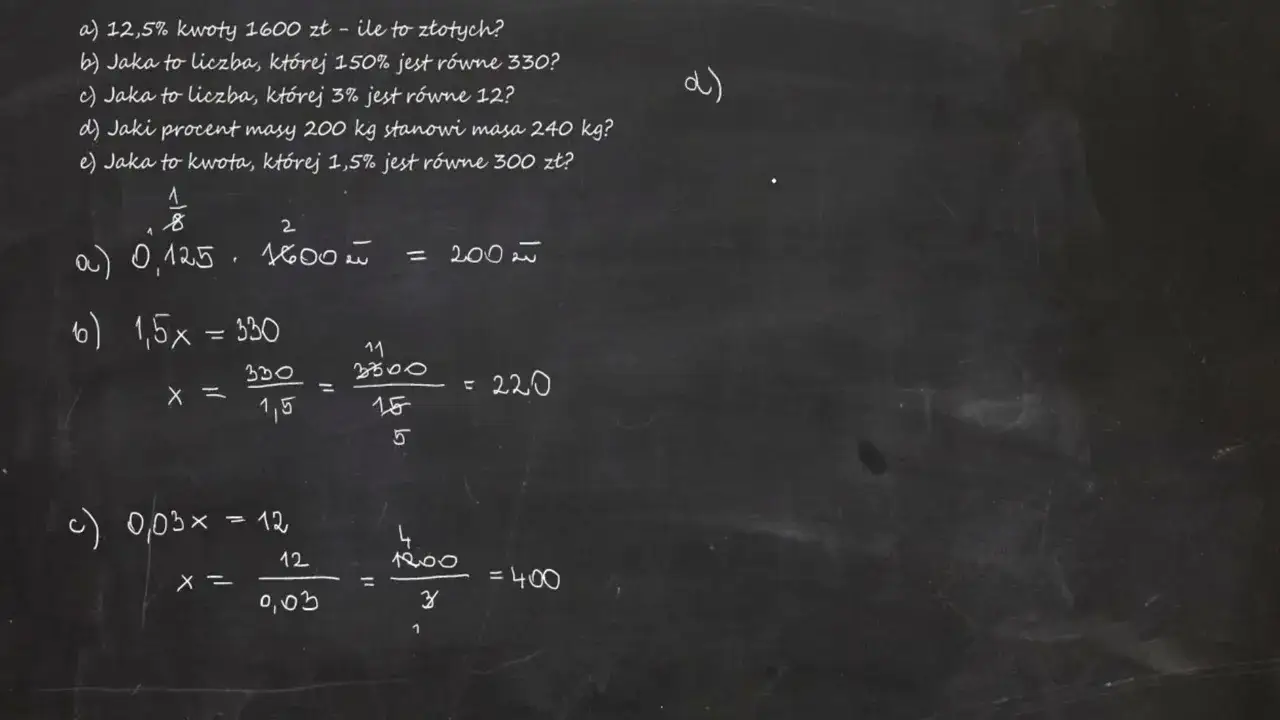 a) 12,5% kwoty 1600 zł - ile to złotych?
b) Jaka to liczba, której 150% jest równe 330?
c) Jaka to liczba, której 3% jest równe 12?
d) Jaki procent masy 200 kg stanowi masa 240 kg?
e) Jaka to kwota, której 1,5% jest równe 300 zł?
1
1 8 2
a) 0,125 · 1600 zł = 200 zł
b) 1,5x = 330
11
x = 330/1,5 = 3300/15 = 220
5
c) 0,03x = 12
4
x = 12/0,03 = 1200/3 = 400
1
d)